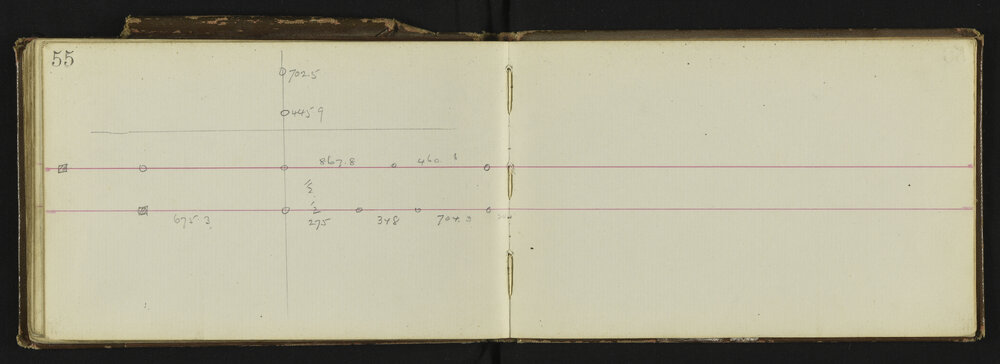 55
702.5
445.9
867.8 460.
675.3 275 348 704.3